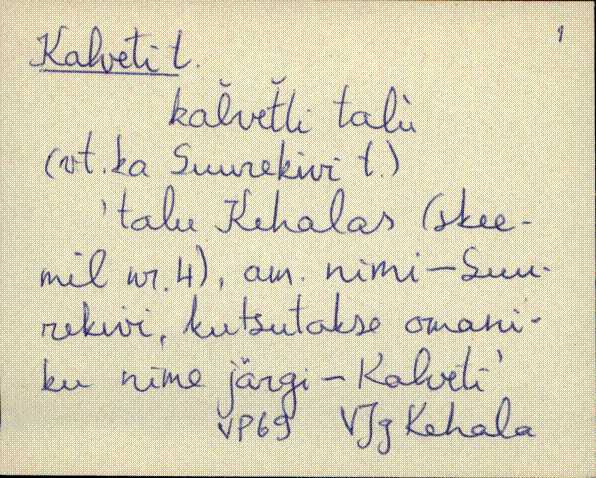 1
Kalveti t.
kal̆vet̆ti talù
(vt. ka Suurekivi t.)
'talu Kehalas (skee-
mil nr. 4), am. nimi – Suu-
rekivi, kutsutakse omani-
ku nime järgi – Kalveti'
VP69 VJg Kehala